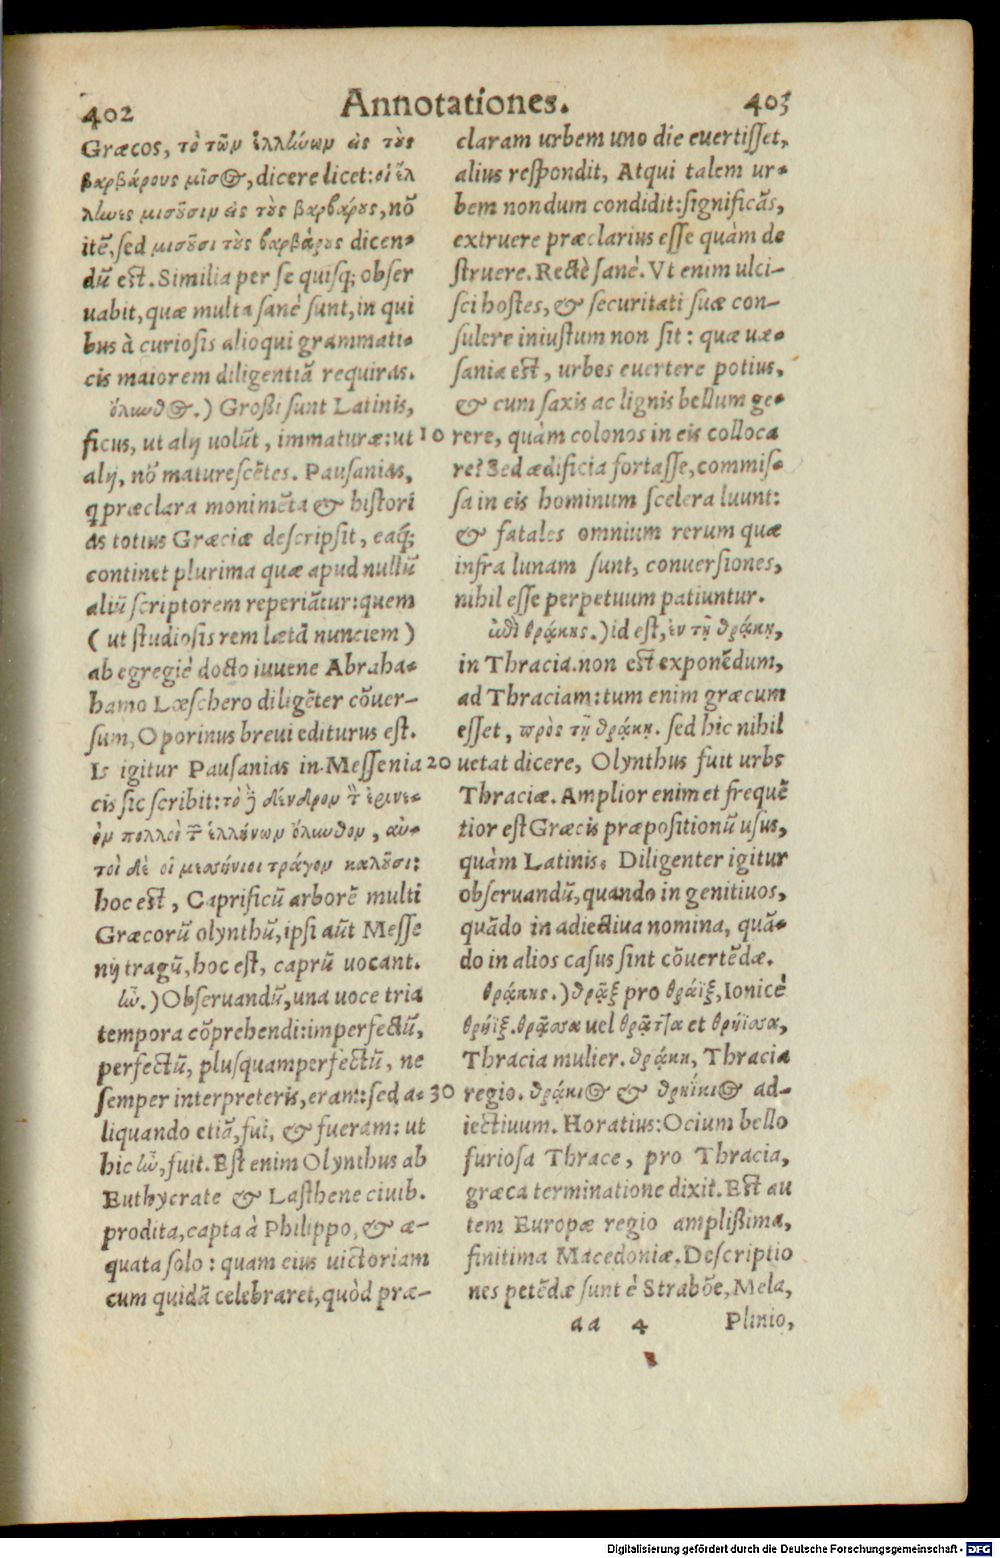 402 Annotationes. 403
Græcos, τὸ τῶν ἑλλήνων εἰς τοὺς
βαρβάρους μῖσος, dicere licet: οἱ ἕλ
ληνες μισοῦσιν εἰς τοὺς βαρβάρους, nō
itē, sed μισοῦσι τοὺς βαρβάρους dicen-
dū est. Similia per se quisq; obser
uabit, quæ multa sanè sunt, in qui
bus à curiosis alioqui grammati-
cis maiorem diligentiā requiras.
ὄλυνθος.) Großi sunt Latinis,
ficus, ut alij uolūt, immaturæ: ut
alij, nō maturescētes. Pausanias,
q præclara monimēta & histori
as totius Græciæ descripsit, eaq;
continet plurima quæ apud nullū
aliū scriptorem reperiātur: quem
(ut studiosis rem lætā nunciem)
ab egregiè docto iuuene Abraha-
hamo Lœschero diligēter cōuer-
sum, Oporinus breui editurus est.
Is igitur Pausanias in Messenia
cis sic scribit: τὸ δένδρον ἐρινε-
ὸν πολλοὶ ἑλλήνων ὄλυνθον, αὐ-
τοὶ δὲ οἱ μεσσήνιοι τράγον καλοῦσι:
hoc est, Caprificū arborē multi
Græcorū olynthū, ipsi aūt Messe
nij tragū, hoc est, caprū uocant.
ἦν.) Obseruandū, una uoce tria
tempora cōprehendi: imperfectū,
perfectū, plusquamperfectū, ne
semper interpreteris, eram: sed a-
liquando etiā, fui, & fueram: ut
hic ἦν, fuit. Est enim Olynthus ab
Euthycrate & Lasthene ciuib.
prodita, capta à Philippo, & æ-
quata solo: quam eius uictoriam
cum quidā celebraret, quòd præ-
10
20
30
claram urbem uno die euertisset,
alius respondit, Atqui talem ur-
bem nondum condidit: significās,
extruere præclarius esse quàm de
struere. Rectè sanè. Vt enim ulci-
sci hostes, & securitati suæ con-
sulere iniustum non sit: quæ uæ-
sania est, urbes euertere potius,
& cum saxis ac lignis bellum ge-
rere, quàm colonos in eis colloca
re? Sed ædificia fortasse, commis-
sa in eis hominum scelera luunt:
& fatales omnium rerum quæ
infra lunam sunt, conuersiones,
nihil esse perpetuum patiuntur.
ἐπὶ θρᾴκης.) id est, ἐν τῇ θρᾴκῃ,
in Thracia. non est exponēdum,
ad Thraciam: tum enim græcum
esset, πρὸς τῇ θρᾴκῃ. sed hic nihil
uetat dicere, Olynthus fuit urbs
Thraciæ. Amplior enim et frequē
tior est Græcis præpositionū usus,
quàm Latinis. Diligenter igitur
obseruandū, quando in genitiuos,
quādo in adiectiua nomina, quā-
do in alios casus sint cōuertēdæ.
θρᾴκης.) θρᾷξ pro θράϊξ, Ionicè
θρήϊξ. θρᾷσσα uel θρᾷττα et θρήϊσσα,
Thracia mulier. θρᾴκη, Thracia
regio. θρᾴκιος & θρηΐκιος ad-
iectiuum. Horatius: Ocium bello
furiosa Thrace, pro Thracia,
græca terminatione dixit. Est au
tem Europæ regio amplißima,
finitima Macedoniæ. Descriptio
nes petēdæ sunt è Strabōe, Mela,
aa 4 Plinio,
Digitalisierung gefördert durch die Deutsche Forschungsgemeinschaft - DFG